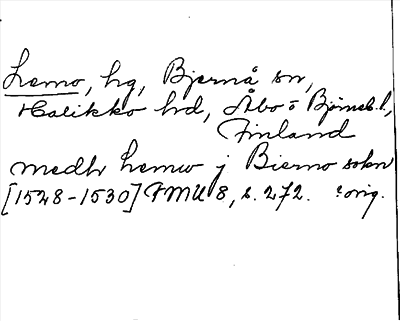 Lemo, hg, Bjernå sn,
Halikko hd, Åbo o Björneb. l,
Finland
medh Lemo j Bierno sokn
[1528-1530] FMU 8, s. 272. orig.